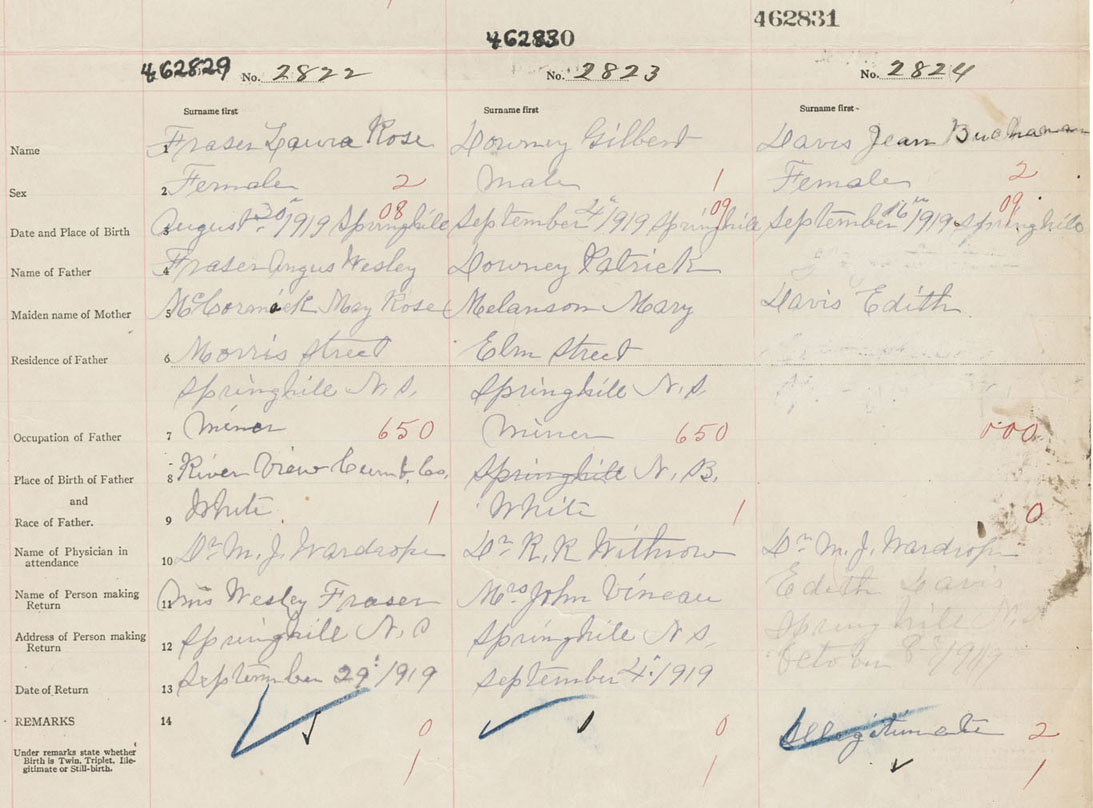 462831
462830
462829 No. 2822 No. 2823 No. 2824
Surname first Surname first Surname first
Name 1 Fraser Laura Rose Downey Gilbert Davis Jean Buchanan
Sex 2 Female 2 Male 1 Female 2
Date and Place of Birth 3 August 30th 1919 08 Springhill September 4th 1919 09 Springhill September 16th 1919 09 Springhill
Name of Father 4 Fraser Angus Wesley Downey Patrick
Maiden name of Mother 5 McCormick May Rose Melanson Mary Davis Edith
Residence of Father 6 Morris Street Elm Street
Springhill N.S. Springhill N.S.
Occupation of Father 7 Miner 650 Miner 650 000
Place of Birth of Father 8 River View Cumb. Co. Springhill N.B.
and
Race of Father. 9 White 1 White 1 0
Name of Physician in
attendance 10 Dr M. J. Wardrope Dr R. R Withrow Dr M. J. Wardrope
Name of Person making
Return 11 Mrs Wesley Fraser Mrs John Vineau Edith Davis
Address of Person making
Return 12 Springhill N.S Springhill N.S. Springhill N.S.
Date of Return 13 September 29th 1919 September 4th 1919 October 8th 1919
REMARKS 14 0 0 Illegitimate 2
Under remarks state whether
Birth is Twin, Triplet, Ille-
gitimate or Still-birth. 1 1 1